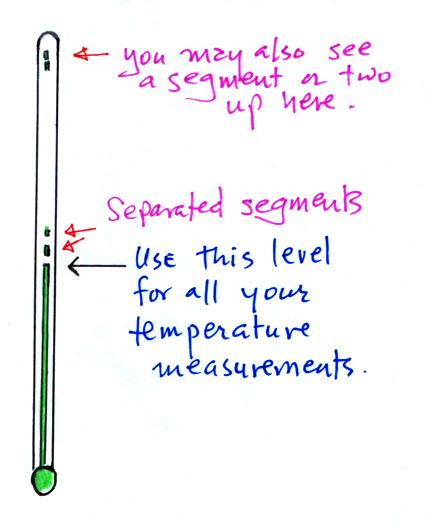 you may also see
a segment or two
up here.
Separated segments
Use this level
for all your
temperature
measurements.